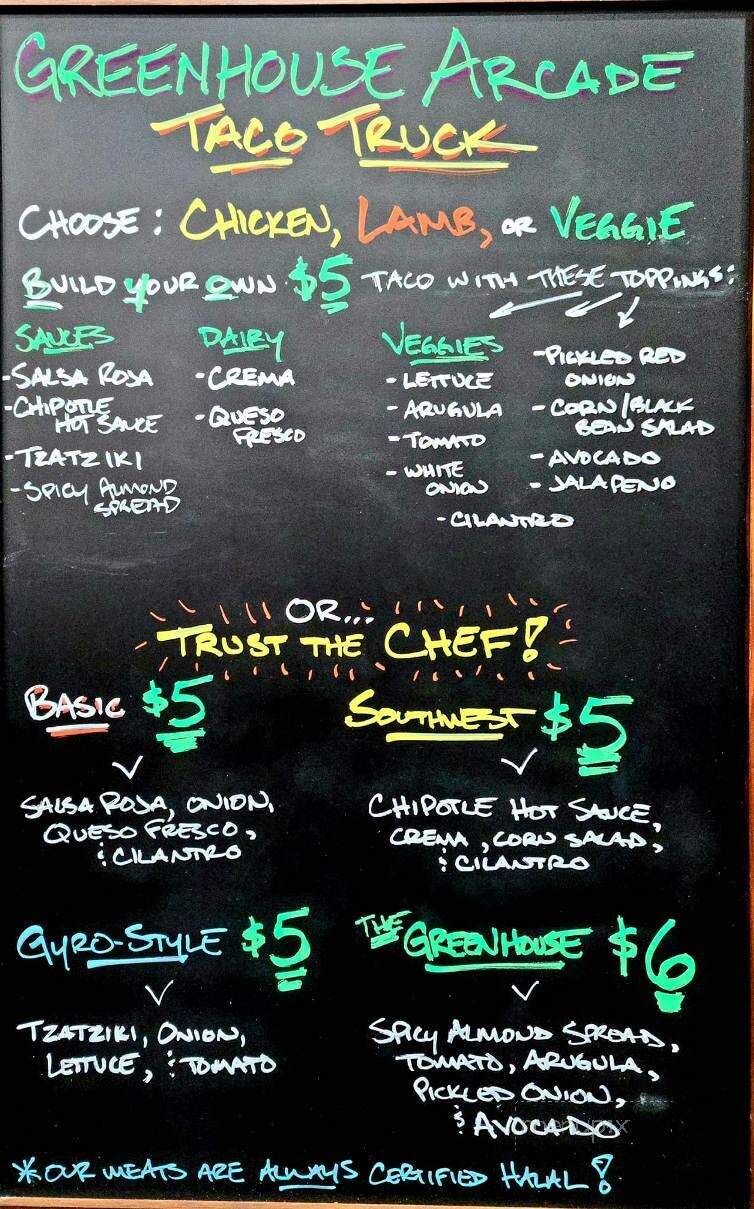 GREENHOUSE ARCADE
TACO TRUCK
CHOOSE: CHICKEN, LAMB, OR VEGGIE
BUILD YOUR OWN $5 TACO WITH THESE TOPPINGS:
SAUCES
- SALSA ROJA
- CHIPOTLE
HOT SAUCE
- TZATZIKI
- SPICY ALMOND
SPREAD
DAIRY
- CREMA
- QUESO
FRESCO
VEGGIES
- LETTUCE
- ARUGULA
- TOMATO
- WHITE
ONION
- CILANTRO
- PICKLED RED
ONION
- CORN/BLACK
BEAN SALAD
- AVOCADO
- JALAPENO
OR...
TRUST THE CHEF!
BASIC $5
SALSA ROJA, ONION,
QUESO FRESCO,
& CILANTRO
SOUTHWEST $5
CHIPOTLE HOT SAUCE,
CREMA, CORN SALAD,
& CILANTRO
GYRO-STYLE $5
TZATZIKI, ONION,
LETTUCE, & TOMATO
THE GREENHOUSE $6
SPICY ALMOND SPREAD,
TOMATO, ARUGULA,
PICKLED ONION,
& AVOCADO
* OUR MEATS ARE ALWAYS CERTIFIED HALAL!